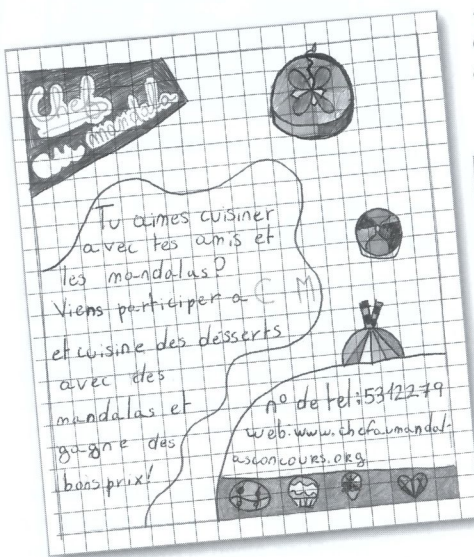 Chef
au mandala
Tu aimes cuisiner
avec tes amis et
les mandalas?
Viens participer a C M
et cuisine des desserts
avec des
mandalas et
gagne des
bons prix!
nº de tel: 5342279
web. www. chefaumandal-
asconcours.org